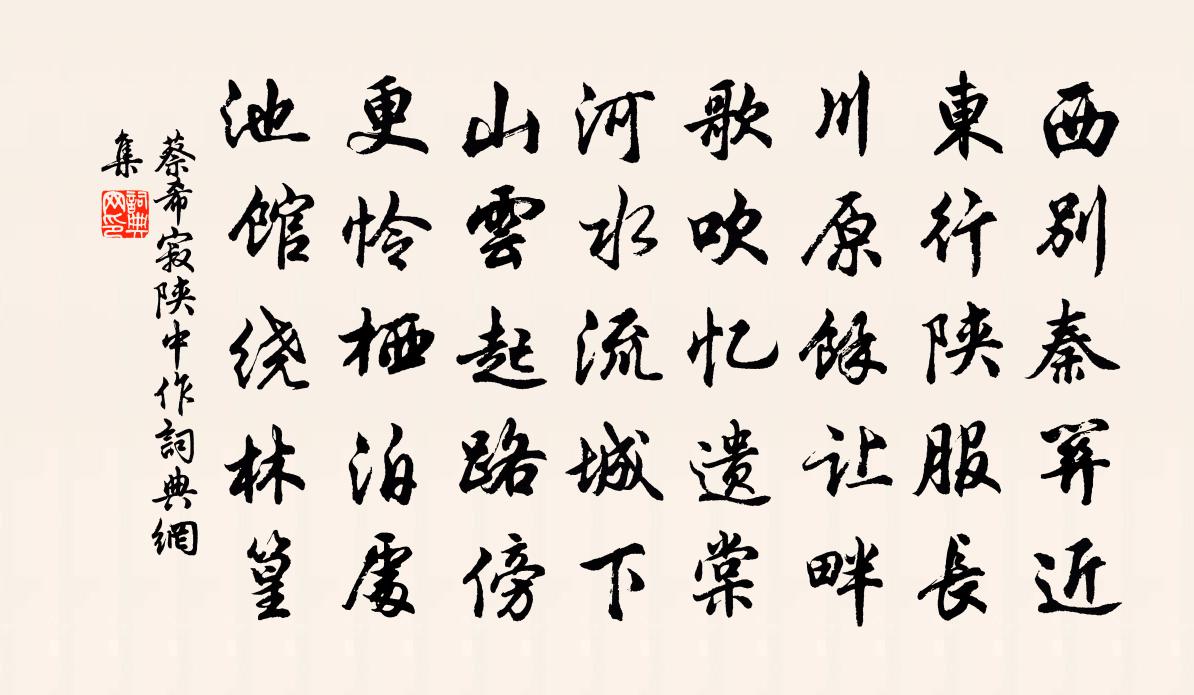 西别秦關近
東行陝服長
川原餘让畔
歌吹忆遗棠
河水流城下
山雲起路傍
更怜栖泊處
池馆绕林篁
蔡希寂陝中作詞典網
集
詞典
网印